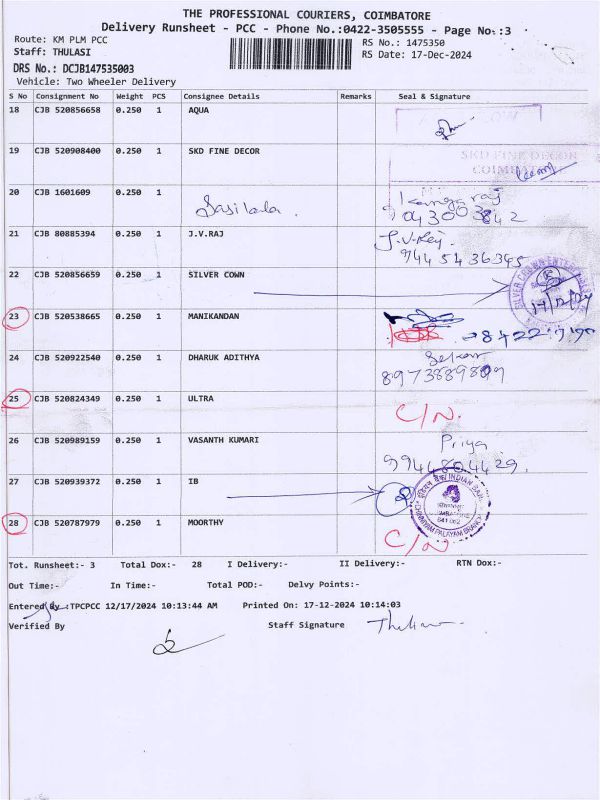 THE PROFESSIONAL COURIERS, COIMBATORE
Delivery Runsheet - PCC - Phone No.:0422-3505555 - Page No.:3
Route: KM PLM PCC
RS No.: 1475350
Staff: THULASI
RS Date: 17-Dec-2024
DRS No.: DCJB147535003
Vehicle: Two Wheeler Delivery
S No Consignment No Weight PCS Consignee Details Remarks Seal & Signature
18 CJB 520856658 0.250 1 AQUA
19 CJB 520908400 0.250 1 SKD FINE DECOR SKD FINE DECOR
COIMBATORE
20 CJB 1601609 0.250 1 Sasilala. Kangaraj
21 CJB 80885394 0.250 1 J.V.RAJ J.V.Raj.
9445436345
22 CJB 520856659 0.250 1 SILVER COWN 17/12/24
23 CJB 520538665 0.250 1 MANIKANDAN
24 CJB 520922540 0.250 1 DHARUK ADITHYA Sekar
25 CJB 520824349 0.250 1 ULTRA C/N.
26 CJB 520989159 0.250 1 VASANTH KUMARI Priya
9944804429.
27 CJB 520939372 0.250 1 IB INDIAN BANK
CHINNIYAM PALAYAM BRANCH
28 CJB 520787979 0.250 1 MOORTHY C/N
Tot. Runsheet:- 3 Total Dox:- 28 I Delivery:- II Delivery:- RTN Dox:-
Out Time:- In Time:- Total POD:- Delvy Points:-
Entered By :TPCPCC 12/17/2024 10:13:44 AM Printed On: 17-12-2024 10:14:03
Verified By Staff Signature